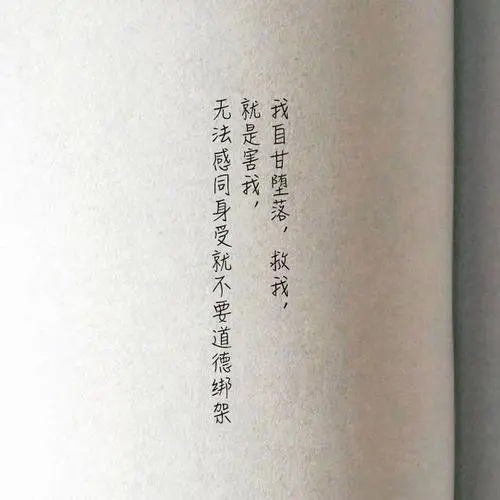 我自甘堕落，救我，
就是害我，
无法感同身受就不要道德绑架